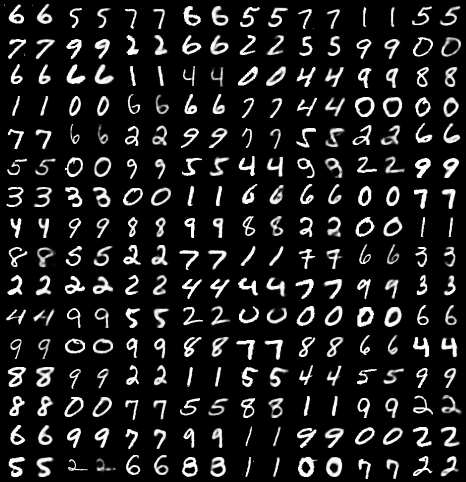 6 6 5 5 7 7 6 6 5 5 7 7 1 1 5 5
7 7 9 9 2 2 6 6 2 2 5 5 9 9 0 0
6 6 6 6 1 1 4 4 0 0 4 4 9 9 8 8
1 1 0 0 6 6 6 6 7 7 4 4 0 0 0 0
7 7 6 6 2 2 9 9 7 7 5 5 2 2 6 6
5 5 0 0 9 9 5 5 4 4 9 9 2 2 9 9
3 3 3 3 0 0 1 1 6 6 6 6 0 0 7 7
4 4 9 9 8 8 9 9 8 8 2 2 0 0 1 1
8 8 5 5 2 2 7 7 1 1 7 7 6 6 3 3
2 2 2 2 2 2 4 4 4 4 7 7 9 9 3 3
4 4 9 9 5 5 2 2 0 0 0 0 0 0 6 6
9 9 0 0 9 9 8 8 7 7 8 8 6 6 4 4
8 8 9 9 2 2 1 1 5 5 4 4 5 5 9 9
8 8 0 0 7 7 5 5 8 8 1 1 9 9 2 2
6 6 9 9 7 7 9 9 1 1 9 9 0 0 2 2
5 5 2 2 6 6 8 8 1 1 0 0 7 7 2 2